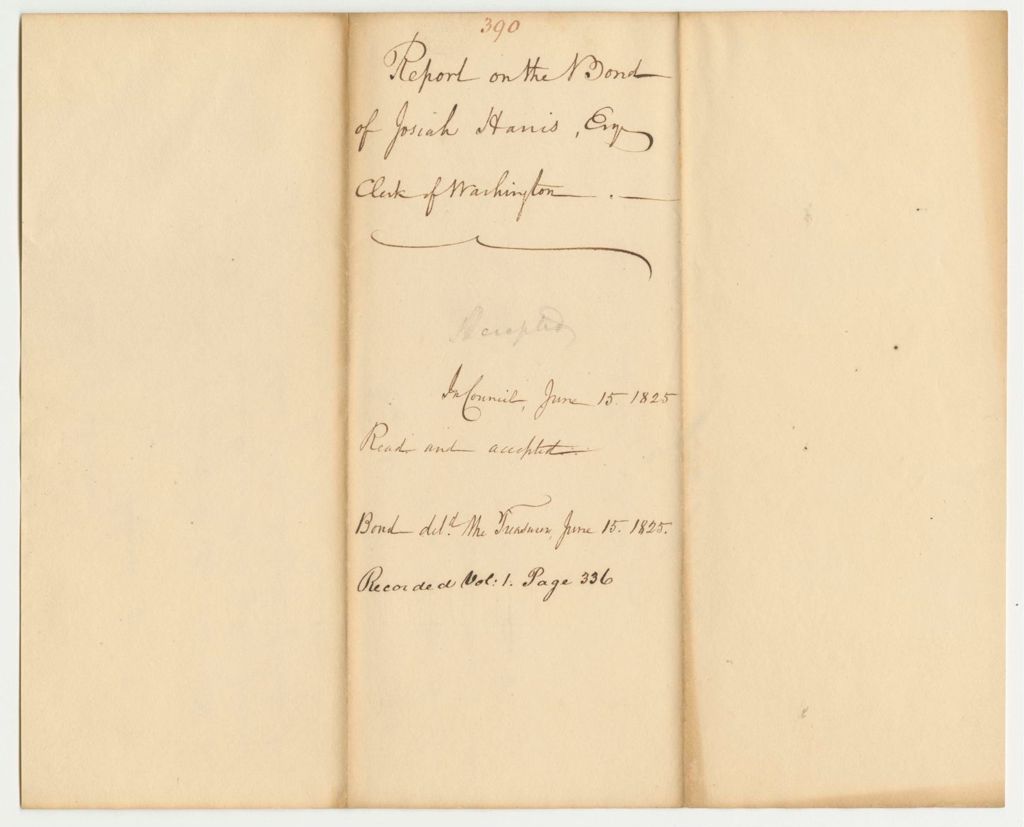 390
Report on the Bond
of Josiah Harris, Esq
Clerk of Washington.
Accepted
In Council, June 15. 1825
Read and accepted.
Bond deld. the Treasurer, June 15. 1825.
Recorded Vol: 1. Page 336